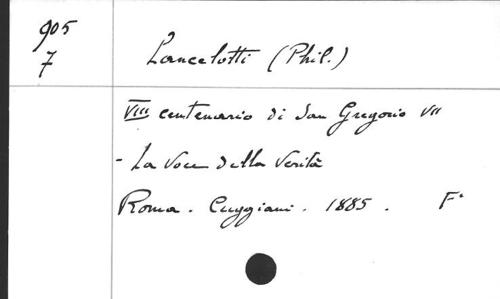 905
7
Lancelotti (Phil.)
VIII centenario di San Gregorio VII
- La Voce della Verità
Roma. Cuggiani. 1885. F°